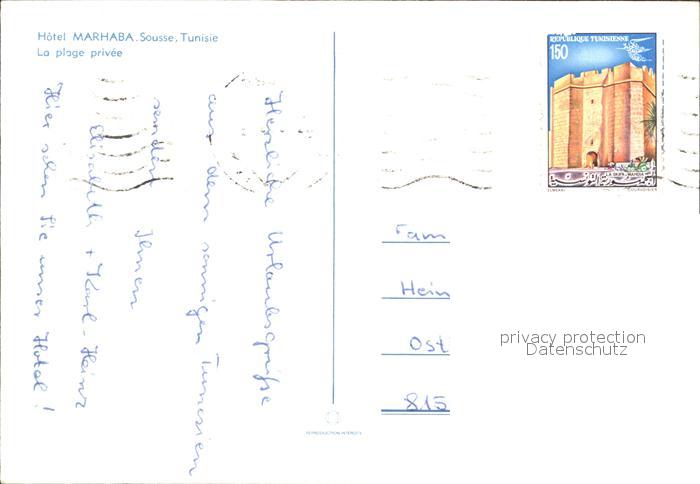 Hôtel MARHABA. Sousse, Tunisie
La plage privée
Herzliche Urlaubsgrüße
aus dem sonnigen Tunesien
senden Ihnen
Elisabeth + Karl-Heinz
Hier sehen Sie unser Hotel!
REPUBLIQUE TUNISIENNE
150
الجمهورية التونسية
Fam
Hein
Ost
815
privacy protection
Datenschutz
REPRODUCTION INTERDITE